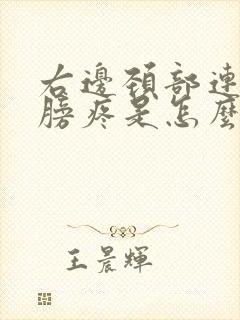 右邊頸部連
膀疼是怎麼
王晨輝